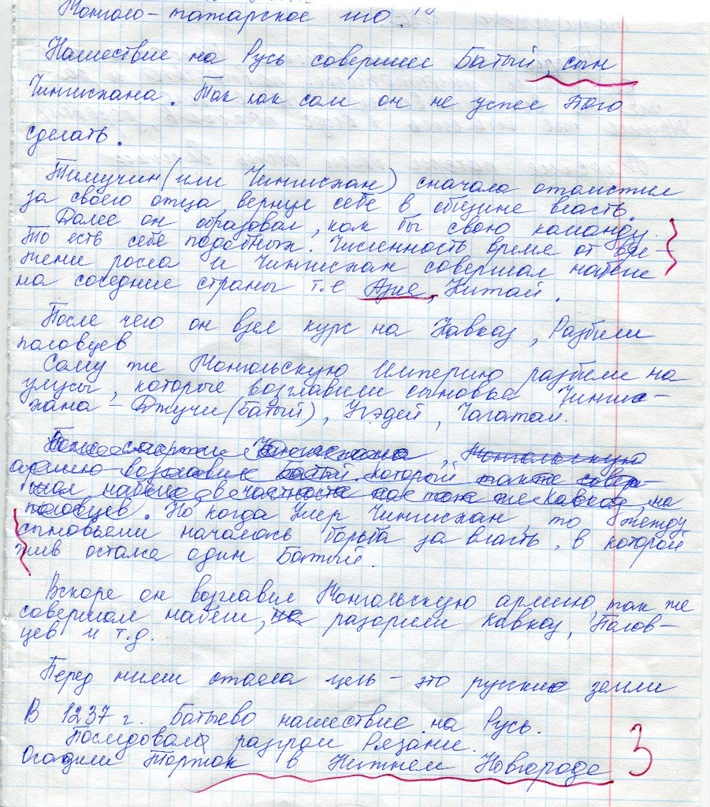 Монголо-татарское иго.
Нашествие на Русь совершил Батый, сын
Чингисхана. Так как сам он не успел того
сделать.
Темучин (или Чингисхан) сначала отомстил
за своего отца вернув себе в общине власть.
Далее он образовал, как бы свою команду.
То есть себе подобных. Численность время от вре-
мени росла и Чингисхан совершал набеги
на соседние страны т.е Азия, Китай.
После чего он взял курс на Кавказ, Разбили
половцев
Саму же Монгольскую Империю разбили на
улусы, которые возглавили сыновья Чингис-
хана - Джучи (Батый), Угэдей, Чагатай.
После смерти Чингисхана, Монгольскую
армию возглавил Батый. который также совер-
шал набеги в частности как тот же Кавказ, на
половцев. Но когда умер Чингисхан, то между
сыновьями началась борьба за власть, в которой
жив остался один Батый.
Вскоре он возглавил Монгольскую армию, так же
совершал набеги, на разорили Кавказ, Полов-
цев и т.д.
Перед ними стояла цель - это русские земли
В 1237 г. Батыево нашествие на Русь.
Последовал разгром Рязани.
Осадили Торжок в Нижнем Новгороде
3